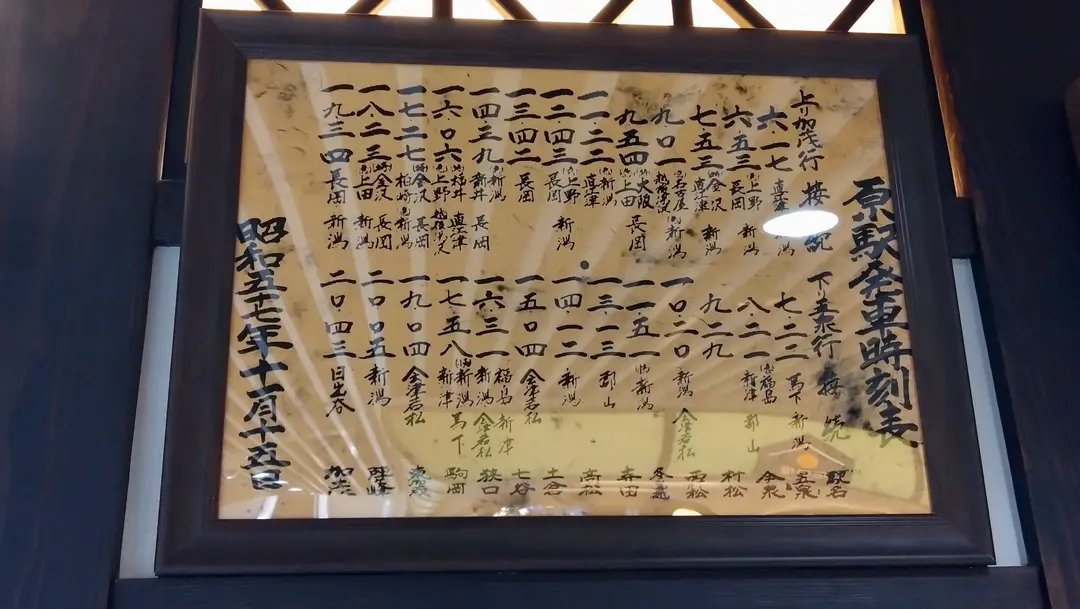 原駅発車時刻表
上リ加茂行 接続
六一七 直津 新潟
六・五三 長岡
七五三 上野 新潟
九〇一 金沢 直津 新潟
九五四 名古屋 新潟
一一・二二 大阪 上田 長岡
一二・四三 新潟 直津
一三・四二 上野 長岡 新潟
一四・三九 長岡
一六・〇六 新潟 新井 長岡
一七・二七 福井 上野 直津
一八・二三 金沢 柏崎 長岡 新潟
一九・三四 上田 新潟
長岡 新潟
下リ五泉行 接続
七・二二 馬下 新潟
八・二一 福島 新津 郡山
九二九
一〇・二〇 新潟 会津若松
一一・五一 新潟
一三・一三 郡山
一四・一二 新潟
一五・〇四 会津若松
一六・三一 福島 新潟 新津 会津若松
一七・五八 新潟 新津 馬下
一九・〇四 会津若松
二〇・〇五 新潟
二〇・四三 日出谷
駅名
五泉
今泉
村松
西松
冬鳥
寺田
高松
土倉
七谷
狭口
駒岡
東加茂
陣ヶ峰
加茂
昭和五十七年十一月十五日